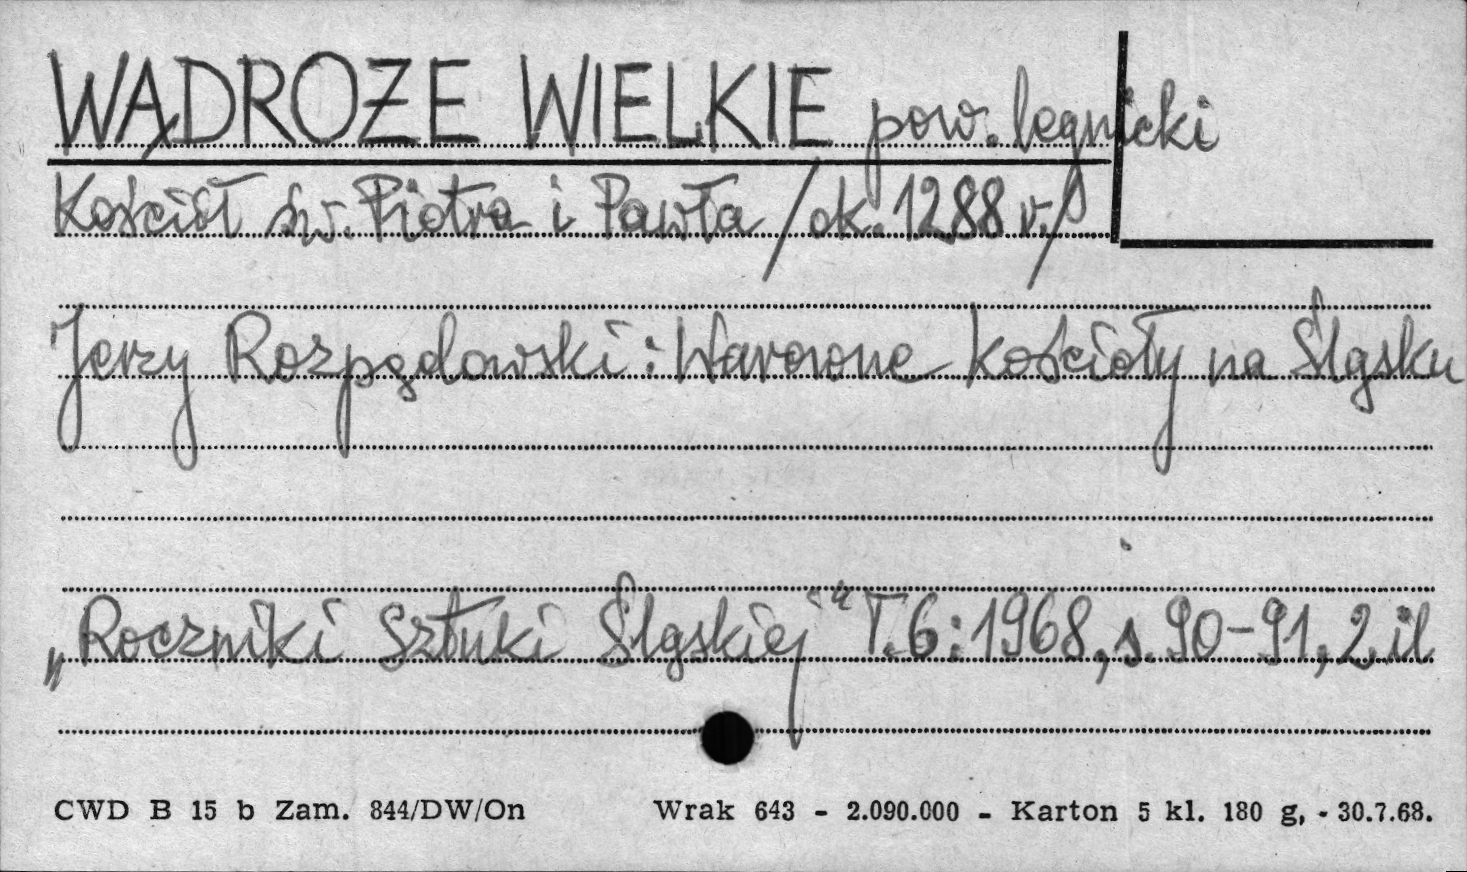 WĄDROŻE WIELKIE pow. legnicki
Kościół św. Piotra i Pawła /ok. 1288 r./
Jerzy Rozpędowski: Warowne kościoły na Śląsku
„Roczniki Sztuki Śląskiej" T.6:1968, s. 90-91, 2 il
CWD B 15 b Zam. 844/DW/On Wrak 643 - 2.090.000 - Karton 5 kl. 180 g, - 30.7.68.